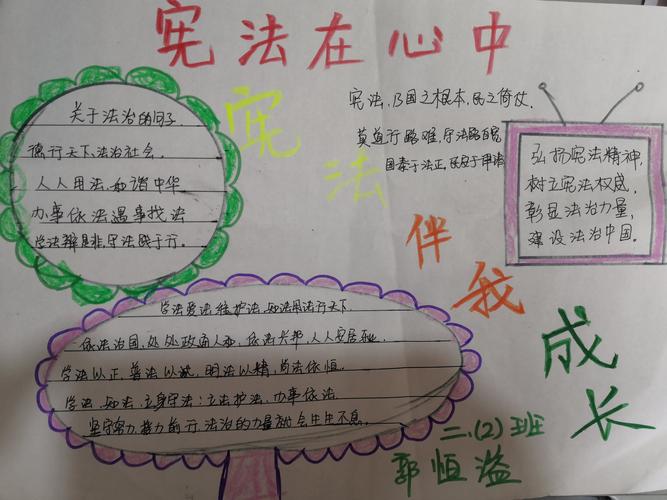 宪法在心中
宪法
伴我
成长
关于法治的句子
德行天下、法治社会。
人人用法、和谐中华
办事依法遇事找法
学法辩是非、守法践于行。
宪法,乃国之根本,民之倚仗,
莫道行路难,守法路自宽
国泰于法正,民安于
弘扬宪法精神,
树立宪法权威,
彰显法治力量,
建设法治中国。
学法爱法维护法,知法用法行天下
依法治国,处处政通人和,依法兴邦,人人安居乐业
学法以正,普法以诚,明法以精,尚法依恒
学法、知法、立身守法;立法护法、办事依法
坚守努力,接力前行,法治的力量就会生生不息。
二、(2)班
郭恒溢